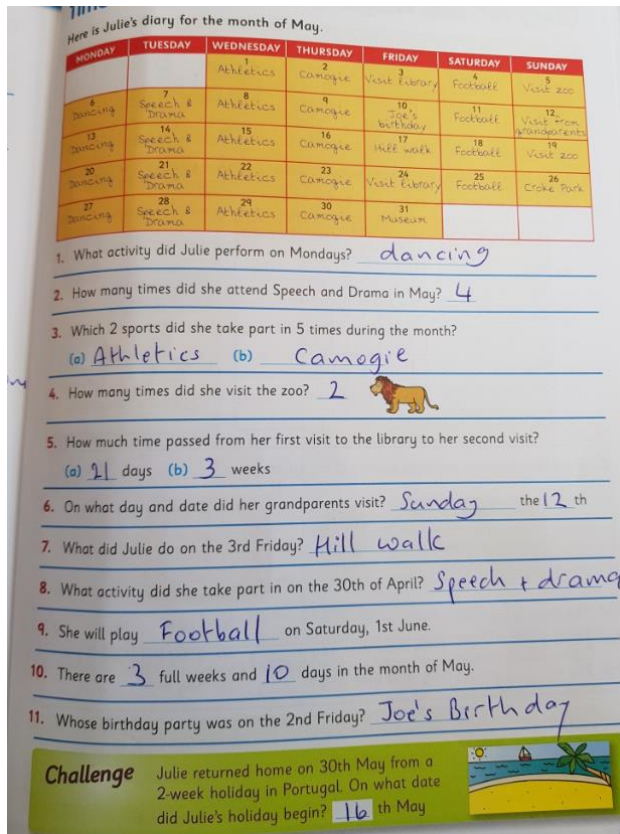 Here is Julie's diary for the month of May.
MONDAY TUESDAY WEDNESDAY THURSDAY FRIDAY SATURDAY SUNDAY
1 2 3 4 5
Athletics Camogie Visit library Football Visit zoo
6 7 8 9 10 11 12
Dancing Speech & Drama Athletics Camogie Joe's birthday Football Visit from grandparents
13 14 15 16 17 18 19
Dancing Speech & Drama Athletics Camogie Hill walk Football Visit zoo
20 21 22 23 24 25 26
Dancing Speech & Drama Athletics Camogie Visit library Football Croke Park
27 28 29 30 31
Dancing Speech & Drama Athletics Camogie Museum
1. What activity did Julie perform on Mondays? dancing
2. How many times did she attend Speech and Drama in May? 4
3. Which 2 sports did she take part in 5 times during the month?
(a) Athletics (b) Camogie
4. How many times did she visit the zoo? 2
5. How much time passed from her first visit to the library to her second visit?
(a) 21 days (b) 3 weeks
6. On what day and date did her grandparents visit? Sunday the 12 th
7. What did Julie do on the 3rd Friday? Hill walk
8. What activity did she take part in on the 30th of April? Speech + drama
9. She will play Football on Saturday, 1st June.
10. There are 3 full weeks and 10 days in the month of May.
11. Whose birthday party was on the 2nd Friday? Joe's Birthday
Challenge Julie returned home on 30th May from a
2-week holiday in Portugal. On what date
did Julie's holiday begin? 16 th May